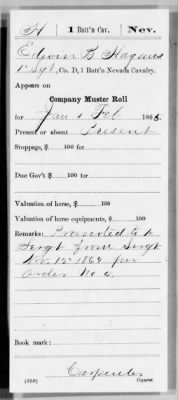 H | 1 Batt'n Cav. | Nev.
Edwin B Hagans
1st Sgt, Co. D, 1 Batt'n Nevada Cavalry.
Appears on
Company Muster Roll
for Jan & Feb , 1865.
Present or absent Present
Stoppage, $ 100 for
Due Gov't $ 100 for
Valuation of horse, $ 100
Valuation of horse equipments, $ 100
Remarks: Promoted to 1st
Sergt from Sergt
Nov. 12" 1864 per
Order No
Book mark:
Carpenter
(358) Copyist.